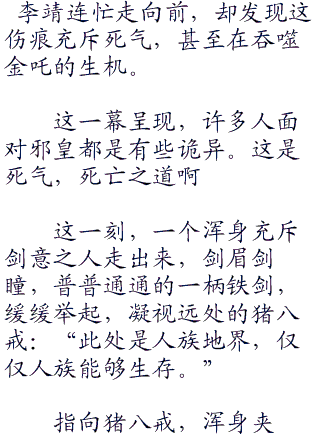 李靖连忙走向前，却发现这
伤痕充斥死气，甚至在吞噬
金吒的生机。
这一幕呈现，许多人面
对邪皇都是有些诡异。这是
死气，死亡之道啊
这一刻，一个浑身充斥
剑意之人走出来，剑眉剑
瞳，普普通通的一柄铁剑，
缓缓举起，凝视远处的猪八
戒：“此处是人族地界，仅
仅人族能够生存。”
指向猪八戒，浑身夹